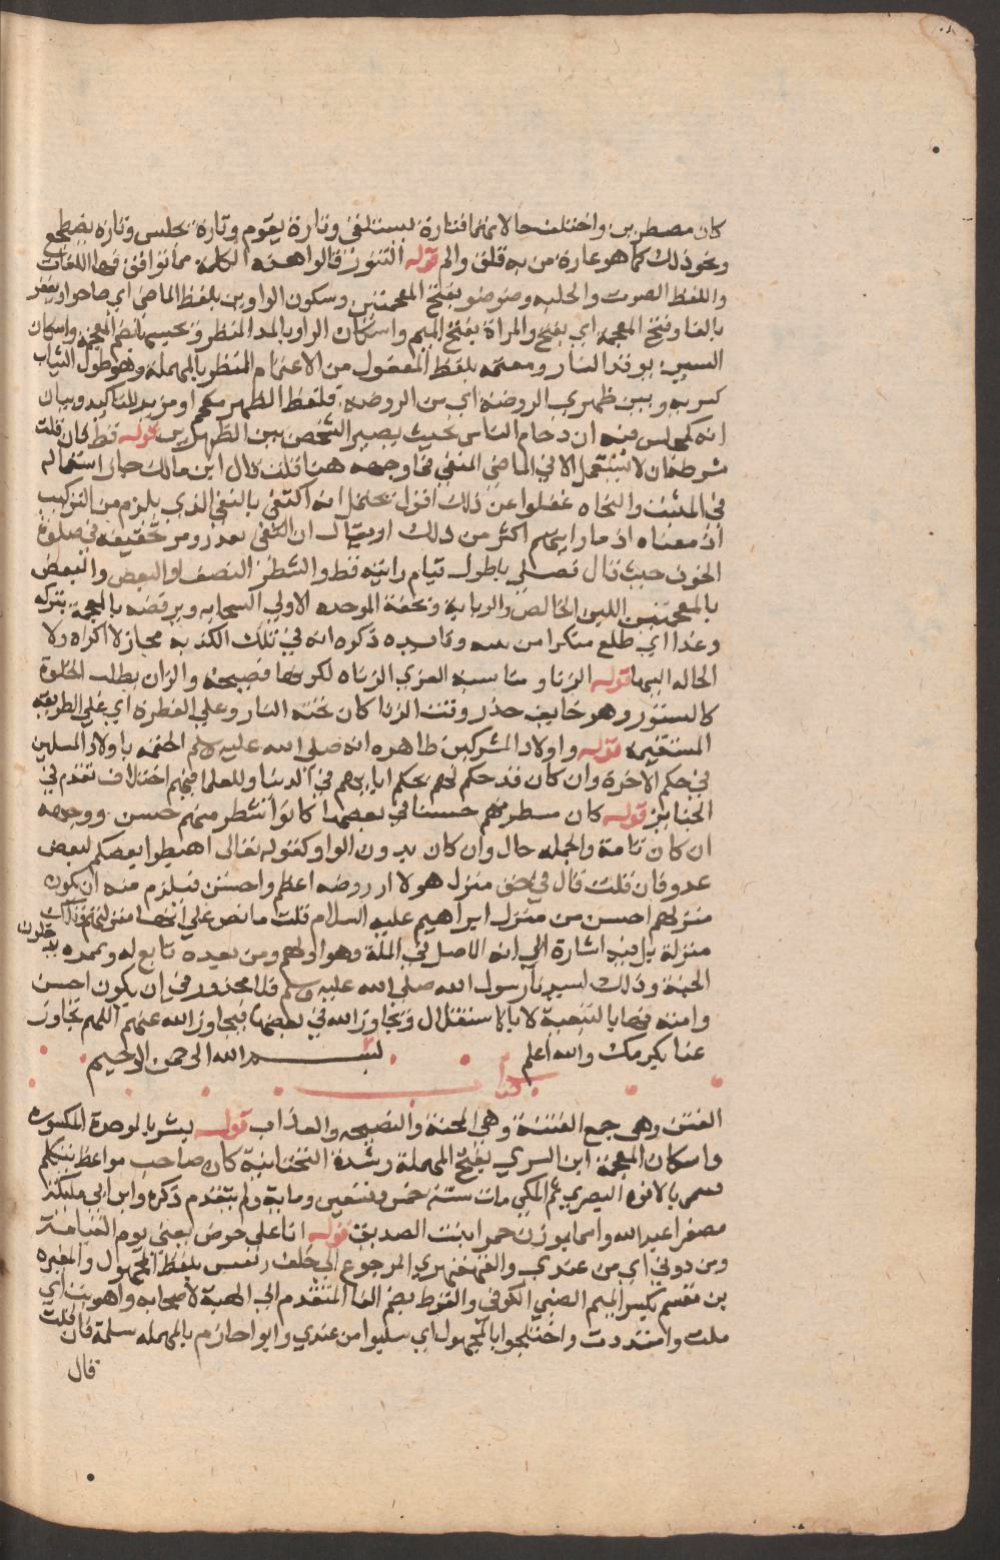 كان مصطربين واختلف حالاتهما فتارة يستلقي وتارة يقوم وتارة يجلس وتارة يضطجع
ونحو ذلك كما هو عارة من به قلق والم قوله التنور قالوا هذه الكلمة مما توافق فيها اللغات
واللغط الصوت والجلبه وضوضو بفتح المعجمتين وسكون الواوين بلفظ الماضي اي صاحوا ويفغر
بالفا وفتح المعجمة اي يفتح والمراة بفتح الميم واسكان الرا وبالمد المنظر ويحسها بضم المعجمة واسكان
السين يوقد النار ومعتمه بلفظ المفعول من الاعتمام المنظر بالمهملة وهو طول النبات
كثرته وبين ظهري الروضة اي من الروضه فلفظ الظهر مقحم او مزيد للتاكيد وبيان
انه كمجلس فيه ازدحام الناس بحيث يصير الشخص بين الظهرين قوله قط فان قلت
شرطه ان لا يستعمل الا في الماضي المنفي فما وجهه هنا قلت قال ابن مالك جاز استعماله
في المثبت والنحاه غفلوا عن ذلك اقول يحتمل انه اكتفى بالنفي الذي يلزم من التركيب
اذ معناه اذ ما رايتهم اكثر من ذلك او يقال ان النفي مقدر ومر تحقيقه في صلوة
الخوف حيث قال فصلي باطول قيام رايته قط والشطر النصف او البعض والبعض
بالمعجمتين اللبن الخالص والربابة وبخفة الموحده الاولي السحابه ويرفضه بالمعجمة يتركه
وغدا اي طلع مبكرا من بيته وفايده ذكره انه في تلك الكذبه مختار لا اكراه ولا
الجاله اليها قوله الزنا و مناسبه العري الزناه لكونها فضيحة والزان يطلب الخلوة
كالستور وهو خايف حذر وقت الزنا كان تحته النار وعلي الفطرة اي علي الطريقة
المستقيمة قوله واولاد المشركين ظاهره انه صلى الله عليه وسلم الحقهم باولاد المسلمين
في حكم الاخرة وان كان قد حكم لهم بحكم ابايهم في الدنيا وللعلما فيهم اختلاف تقدم في
الجنايز قوله كان سطر منهم حسنا في بعضها كانوا شطر منهم حسن ووجهه
ان كان تامة والجمله حال وان كان بدون الواو كقوله تعالى اهبطوا بعضكم لبعض
عدو فان قلت قال في حق منزل هولا ار روضه اعظم واحسن فيلزم منه ان يكون
منزلهم احسن من منزل ابراهيم عليه السلام قلت ما نص علي انها منزلتهم
منزلة بل فيه اشارة الي انه الاصل في الملة وهو اولهم ومن بعده تابع له وبممره يدخلون
الجنة وذلك لسيدنا رسول الله صلى الله عليه وسلم فلا محذور في ان يكون احسن
وامنه فيها بالتبعية لا بالاستقلال وتجاوز الله في بعضها فتجاوز الله عنهم اللهم تجاوز
عنا بكرمك والله اعلم بسم الله الرحمن الرحيم
كتاب
الفتن وهي جمع الفتنة وهي المحنة والفضيحه والعذاب قوله بشر بالموحدة المكسورة
واسكان المعجمة ابن السري بفتح المهملة وشدة التحتانية كان صاحب مواعظ يتكلم
فسمي بالافوه البصري ثم المكي مات سنة خمس وتسعين وماية ولم يتقدم ذكره وابن ابي مليكة
مصغرا عبد الله واسما بوزن حمرا بنت الصديق قوله انا علي حوضي يعني يوم القيامة
ومن دوني اي من عندي والقهقهري المرجوع الى خلف ونفتن بلفظ المجهول والمغيره
بن مقسم بكسر الميم الضبي الكوفي والفرط بضم الفا المتقدم الي الهبة لاصحابه واهويت اي
ملت وامتددت واختلجوا بالمجهول اي سلبوا من عندي وابو احازم بالمهمله سلمة فان قلت
قال